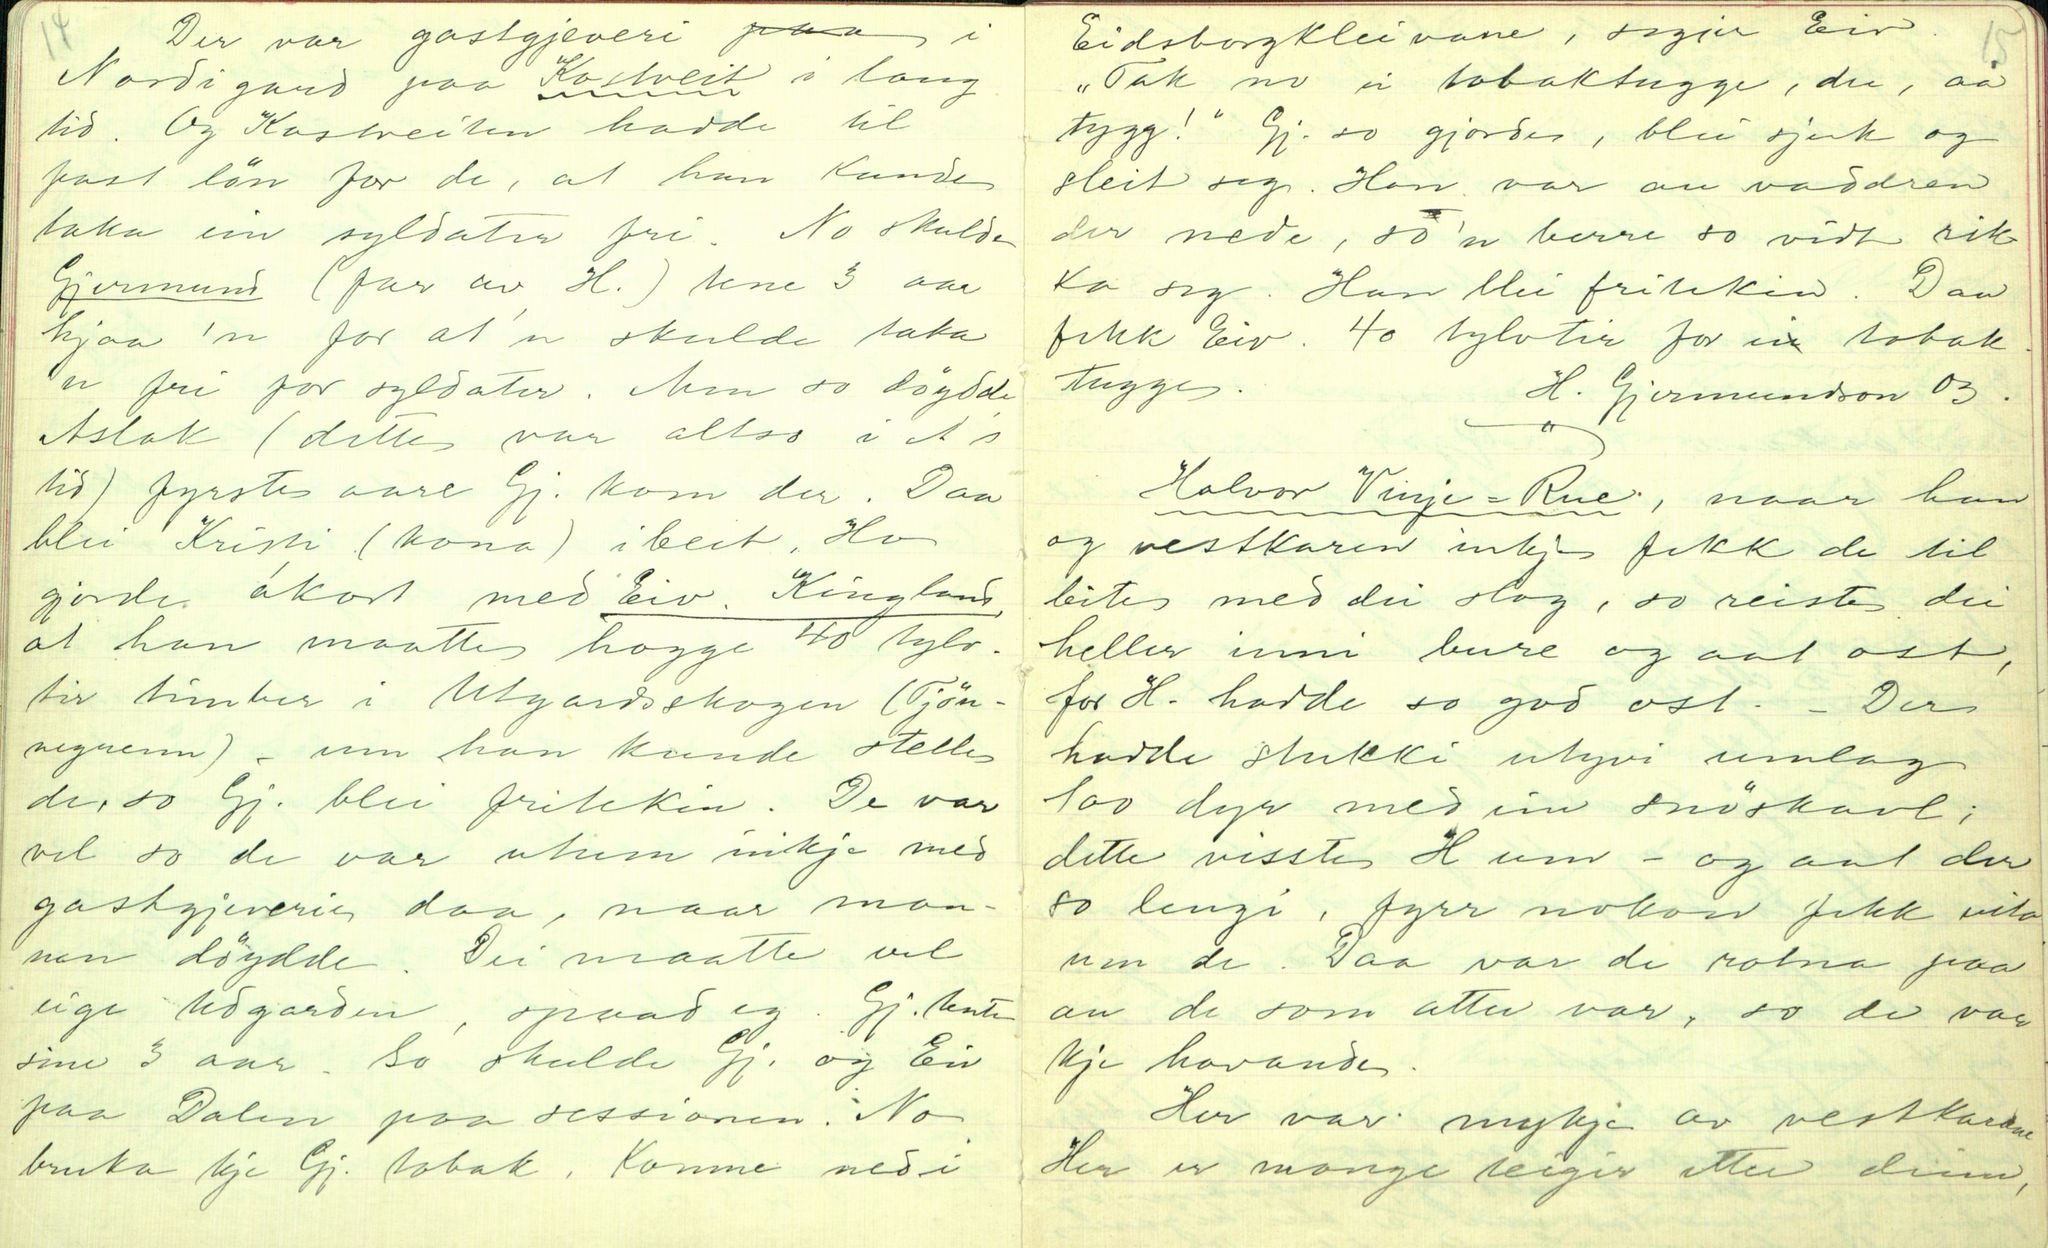 14
Der var gastgjeveri paa i
Nordigard paa Kostveit i lang
tid. Og Kostveiten hadde til
fast lön for de, at han kunde
taka ein syldater fri. No skulde
Gjermund (far av H.) tene 3 aar
hjaa 'n for at'n skulde taka
'n fri for syldater. Men so döydde
Aslak (dette var altso i A's
tid) fyrste aare Gj. kom der. Daa
blei Kristi (kona) i beit. Ho
gjorde akort med Eiv. Kingland
at han maatte hogge 40 tylv-
tir timber i Utgardsskogen (Tjön-
negrenn) - um han kunde stelle
de, so Gj. blei fritekin. De var
vel so de var uhem inkje med
gastgjeverie daa, naar man-
nen döydde. Dei maatte vel
eige Utgarden, spaad eg. Gj. tente
sine 3 aar. So skulde Gj. og Eiv
paa Dalen paa sessionen. No
bruka kje Gj. tobak. Komne ned i
15
Eidsborgkleivane, segjer Eiv.
"Tak no ei tobaktugge, du, aa
tygg!" Gj. so gjorde, blei sjuk og
sleit seg. Han var au vaddren
der nede, so'n berre so vidt rik-
ka seg. Han blei fritekin. Daa
fekk Eiv. 40 tylvtir for ei tobak-
tugge.
H. Gjermundson 03.
"
Halvor Vinje=Rue, naar han
og vestkaren inkje fekk de til
beite med dei slog, so reiste dei
heller inni bure og aat ost,
for H. hadde so god ost. - Der
hadde stukki utyvi umlag
100 dyr med ein snöskavl;
dette visste H um - og aat der
so lengi, fyrr nokon fekk vita
um de. Daa var de rotna paa
au de som atter var, so de var
kje havande.
Her var mykje av vestkarane
Her er mange teigir etter deim,